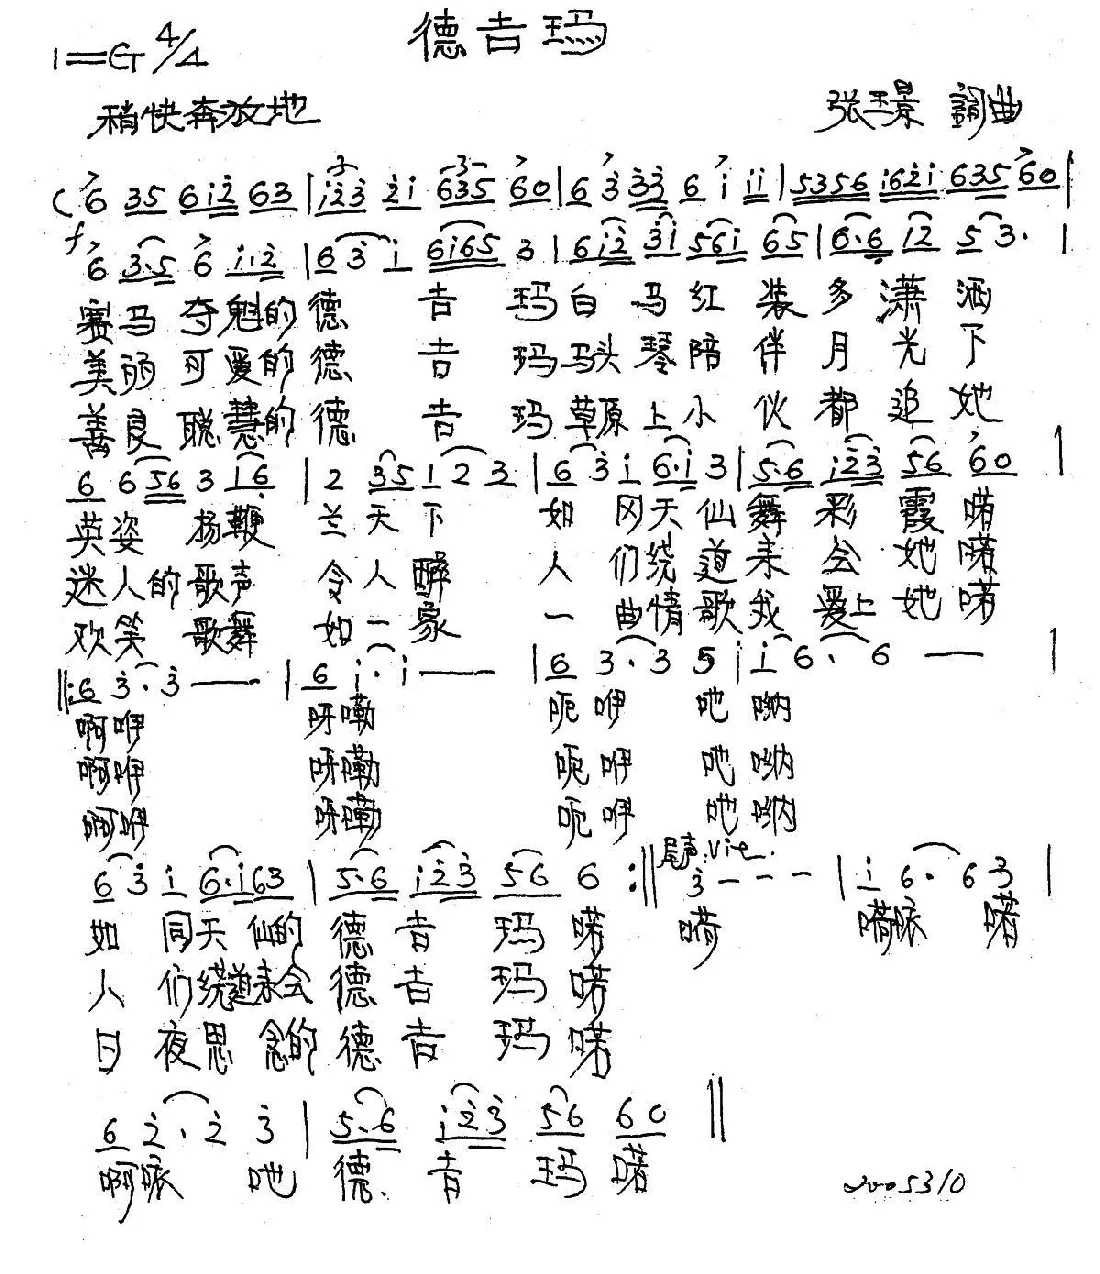 德吉玛
1=G 4/4
稍快奔放地
张玉景 詞曲
( 6 35 6i2 63 | i23 2i 635 60 | 6 3 33 6 i ii | 5356 i62i 635 60 |
f
6 3.5 6 i.i2 | 6 3 i 6i65 3 | 6i2 3i 56i 65 | 6.6 12 5 3. |
赛马夺魁的德 吉 玛白马红装多潇洒
美丽可爱的德 吉 玛马头琴陪伴月光下
善良聪慧的德 吉 玛草原上小伙都追她
6 6 56 3 16 | 2 35 1 2 3 | 6 3 i 6.i 3 | 5.6 i23 56 60 |
英姿 杨鞭 兰天下 如 冈天仙舞彩霞喏
迷人的歌声 令人醉 人 们绕道来会她喏
欢笑 歌舞 如一家 一 曲情歌我爱上她喏
‖: 6 3. 3 — | 6 i. i — | 6 3. 3 5 | i 6. 6 — |
啊咿 呀嘞 呃咿 吔哟
啊咿 呀嘞 呃咿 吔哟
啊咿 呀嘞 呃咿 吔哟
6 3 i 6.i63 | 5.6 i23 56 6 :‖ 尾声. 3 - - - | i 6. 6 3 |
如 同天仙的 德吉 玛喏 嗬 嗬咴 喏
人 们绕道来会 德吉 玛喏
日 夜思念的 德吉 玛喏
6 2. 2 3 | 5.6 i23 56 60 ‖
啊咴 吔 德. 吉 玛 喏
2005310